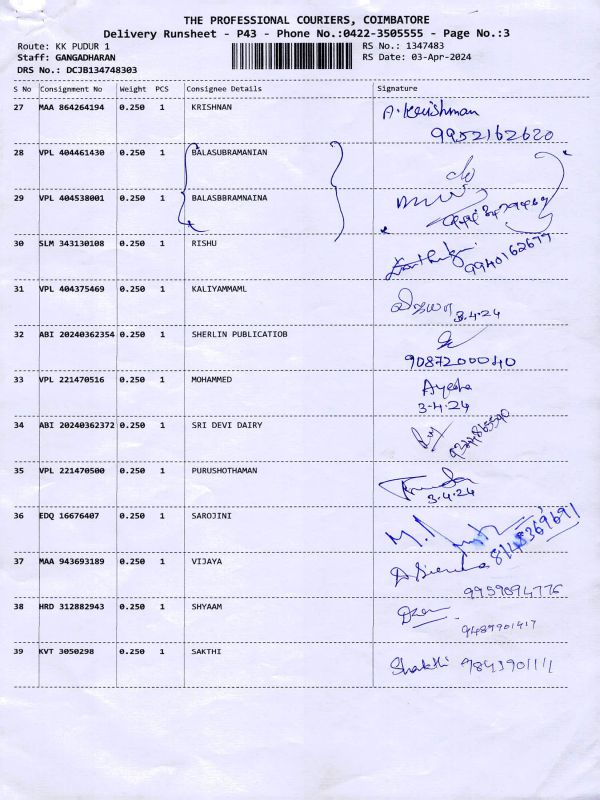 THE PROFESSIONAL COURIERS, COIMBATORE
Delivery Runsheet - P43 - Phone No.:0422-3505555 - Page No.:3
Route: KK PUDUR 1 RS No.: 1347483
Staff: GANGADHARAN RS Date: 03-Apr-2024
DRS No.: DCJB134748303
S No Consignment No Weight PCS Consignee Details Signature
27 MAA 864264194 0.250 1 KRISHNAN A. Krishman
9952162620
28 VPL 404461430 0.250 1 BALASUBRAMANIAN
29 VPL 404538001 0.250 1 BALASBBRAMNAINA
30 SLM 343130108 0.250 1 RISHU 9940162677
31 VPL 404375469 0.250 1 KALIYAMMAML விஜயா 3.4.24
32 ABI 20240362354 0.250 1 SHERLIN PUBLICATIOB
9087200040
33 VPL 221470516 0.250 1 MOHAMMED Ayesha
3.4.24
34 ABI 20240362372 0.250 1 SRI DEVI DAIRY
35 VPL 221470500 0.250 1 PURUSHOTHAMAN
3.4.24
36 EDQ 16676407 0.250 1 SAROJINI 8148369691
37 MAA 943693189 0.250 1 VIJAYA
9959094776
38 HRD 312882943 0.250 1 SHYAAM
9489901417
39 KVT 3050298 0.250 1 SAKTHI Shakthi 9843901111